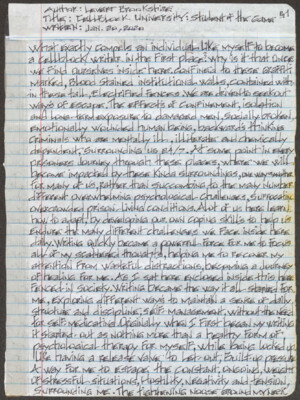 Author: Levert Brookshire
#1
Title: Cellblock University: Student of the Game
Written: Jan. 20, 2020
What exactly compels an individual like myself to become
a cellblock writer in the first place? Why is it that once
we find ourselves inside here, confined to these
marked, blood stained institutional walls, contained with
in these tall, electrified fences we are driven to seek out
ways of escape. The effects of confinement, isolation
and long-term exposure to damaged men, socially broken,
emotionally wounded human beings, backwards thinking
criminals who are mentally ill, illiterate and chemically
dependent, surrounding us 24/7. At some point in every
prisoners journey through these places, where we will
become impacted by these kinda surroundings, one way
for many of us, rather than succumbing to the many
different overwhelming psychological challenges, surrounding
overcrowded prison living conditions. A lot of us here learn
how to adapt, by developing our own coping skills to help us
endure the many different challenges we face inside here
daily. Writing quickly became a powerful force for me to focus
all of my scattered thoughts, helping me to recover my
attention from wasteful distractions, becoming a journey
of healing for me. As I sat here enclosed inside this here
fenced-in society. Writing became the way it all started for
me, exploring different ways to maintain a sense of daily
structure and discipline, self management, without the need
for self medicating. Originally when I first began my writing
it started-out as nothing more than a healthy form of
psychological therapy for myself, while being locked up
like having a release valve, to let out, built-up pressure
A way for me to escape, the constant, ongoing, weight
of stressful situations, hostility, negativity and tension,
surrounding me. The flattening noise around myself